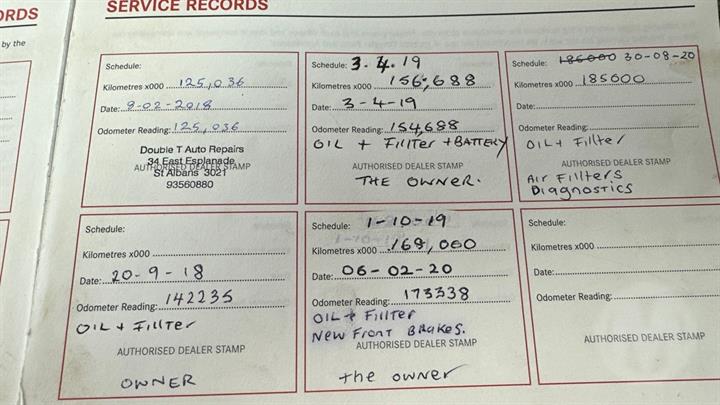 ORDS
SERVICE RECORDS
by the
Schedule:
Kilometres x000 125,036
Date: 9-02-2018
Odometer Reading: 125,036
Double T Auto Repairs
34 East Esplanade
AUTHORISED DEALER STAMP
St Albans 3021
93560880
Schedule: 3.4.19
Kilometres x000 156,688
Date: 3-4-19
Odometer Reading: 154,688
OIL + FILLTER + BATTERY
AUTHORISED DEALER STAMP
THE OWNER.
Schedule: 186000 30-08-20
Kilometres x000 185000
Date:
Odometer Reading:
OIL + Fillter
AUTHORISED DEALER STAMP
Air Fillters
Diagnostics
Schedule:
Kilometres x000
Date: 20-9-18
Odometer Reading: 142235
OIL + Fillter
AUTHORISED DEALER STAMP
OWNER
Schedule: 1-10-19
Kilometres x000 168,060
Date: 06-02-20
Odometer Reading: 173338
OIL + Fillter
New Front Brakes.
AUTHORISED DEALER STAMP
the owner
Schedule:
Kilometres x000
Date:
Odometer Reading:
AUTHORISED DEALER STAMP